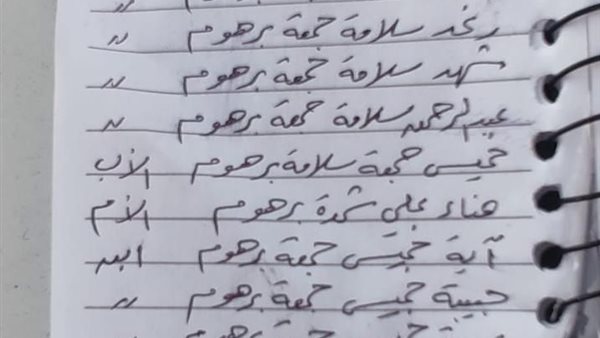 رغد سلامة جمعة برهوم "
شهد سلامة جمعة برهوم "
عبدالرحمن سلامة جمعة برهوم "
خميس جمعة سلامة برهوم الأب
هناء علي برهوم الأم
آية خميس جمعة برهوم ابنه
حبيبة خميس جمعة برهوم "